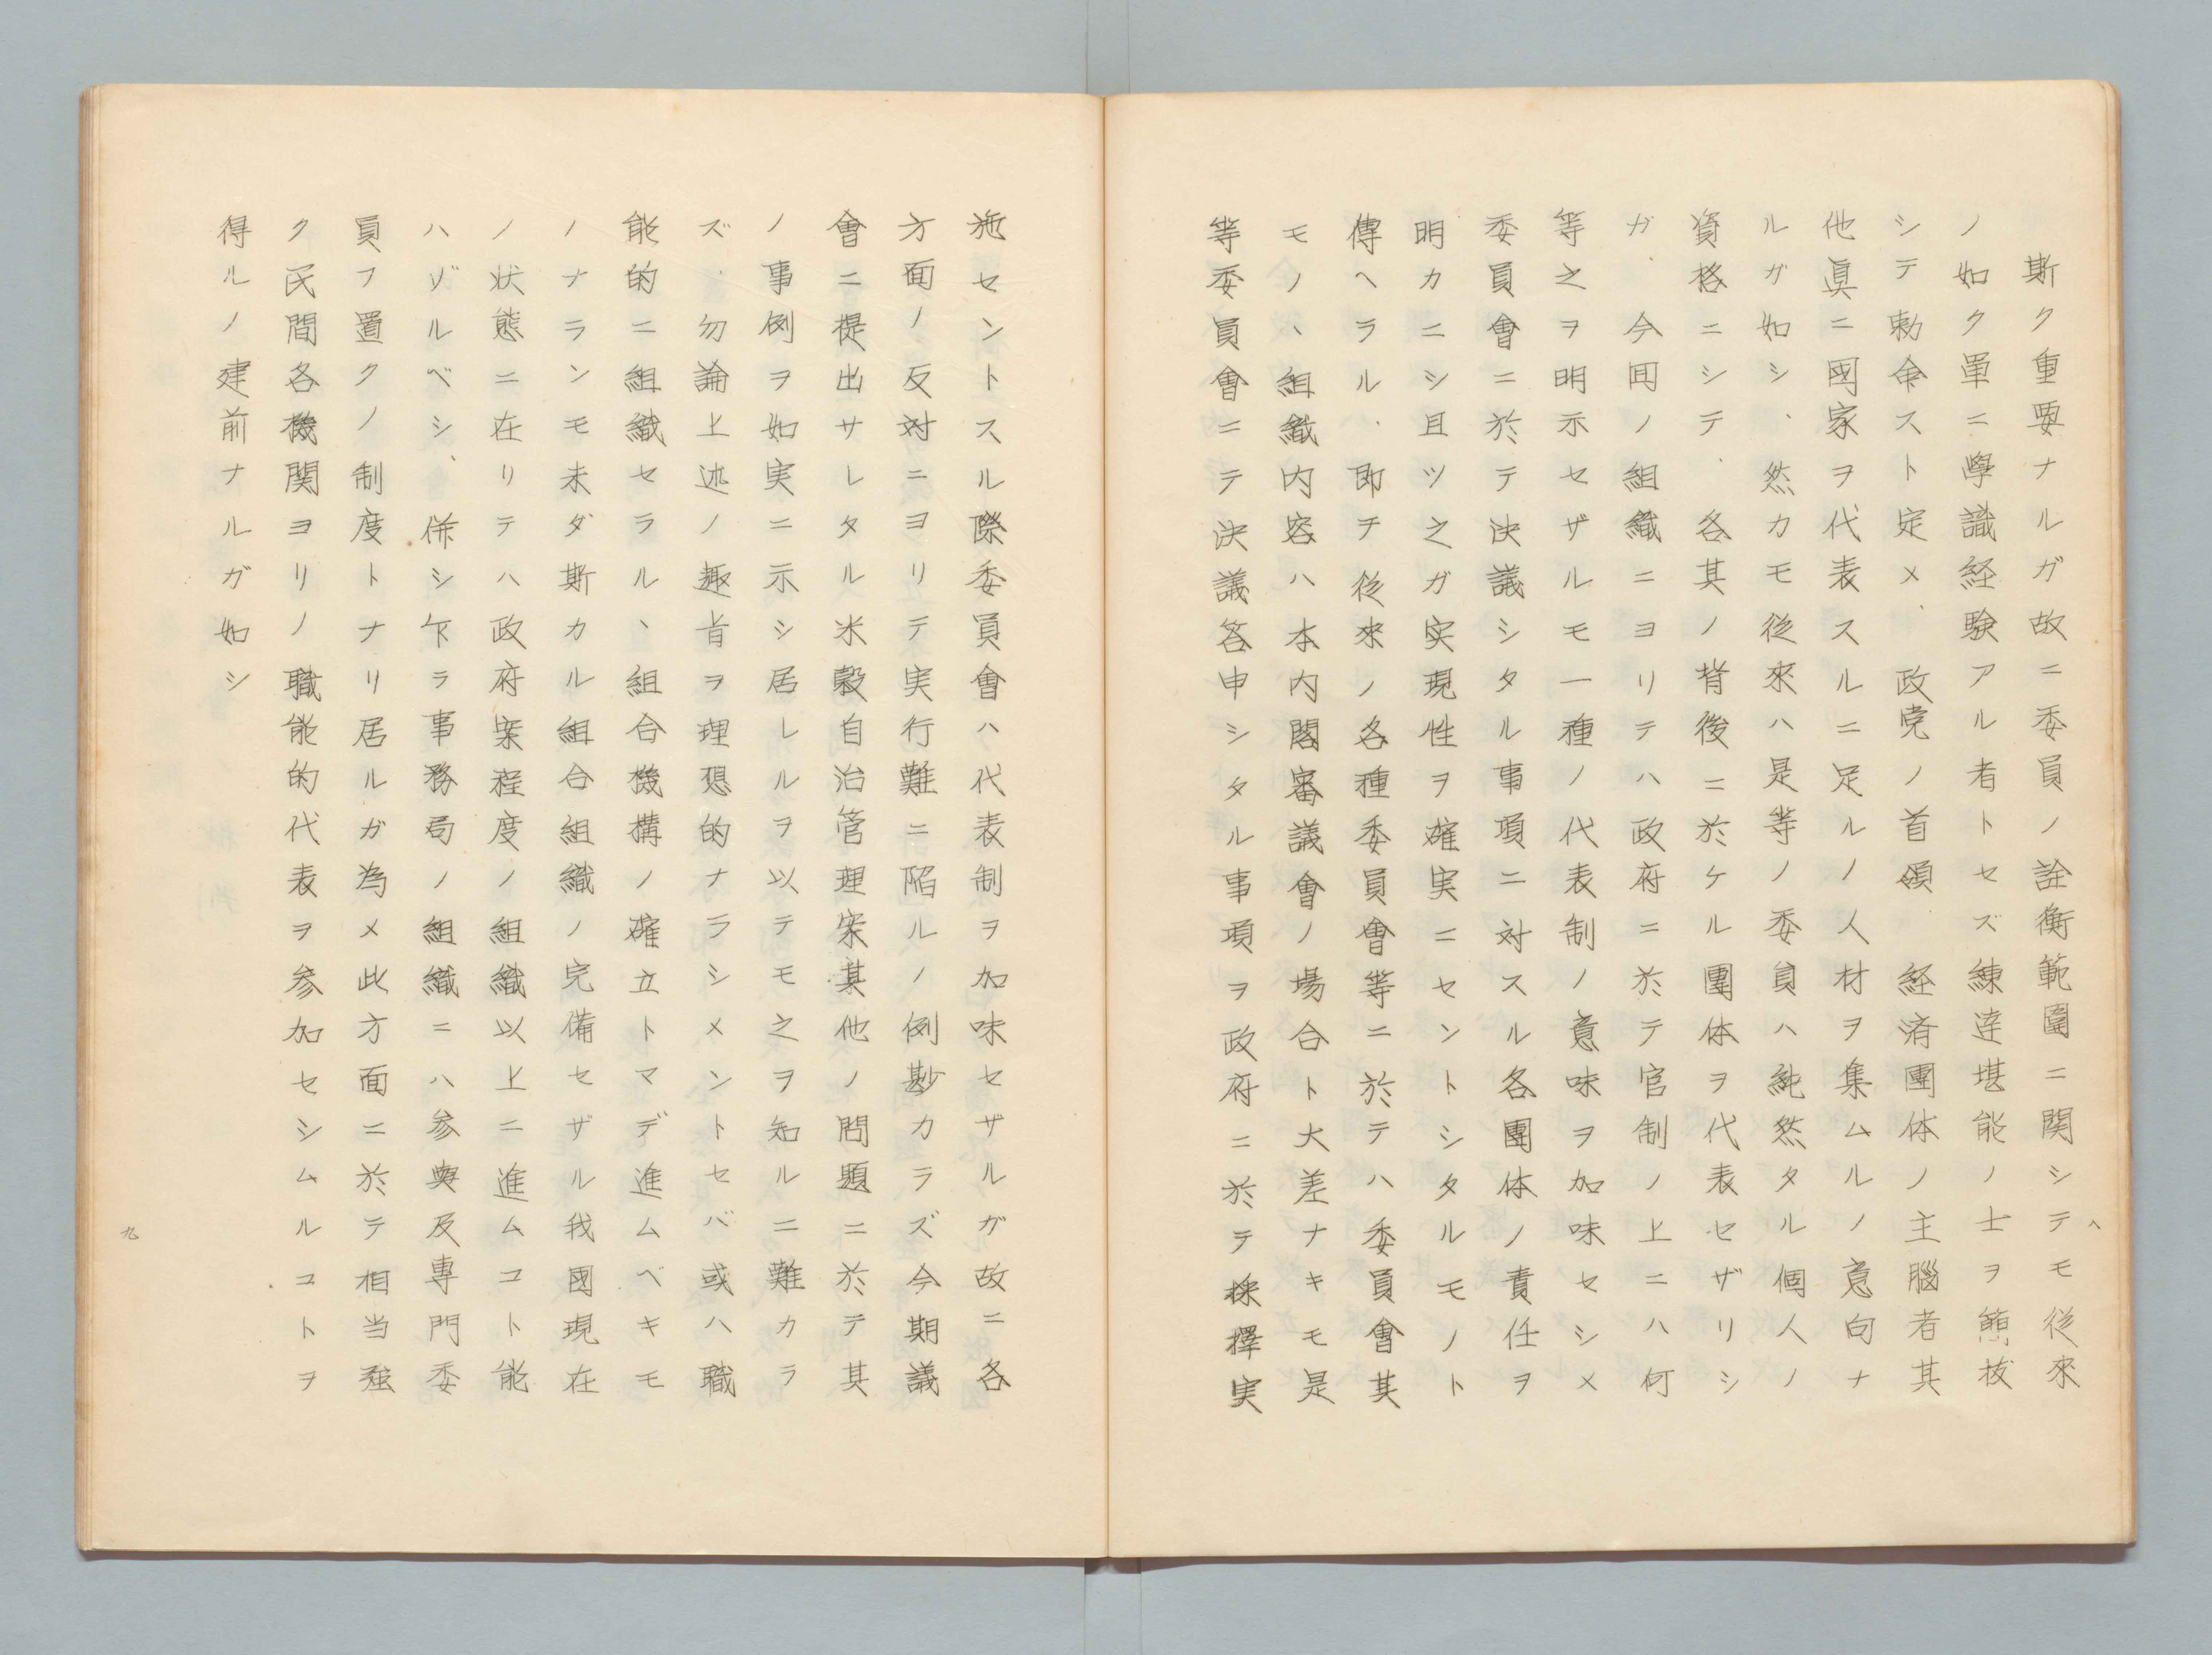 斯ク重要ナルガ故ニ委員ノ詮衡範圍ニ関シテモ従來
ノ如ク單ニ學識経験アル者トセズ練達堪能ノ士ヲ簡抜
シテ勅命スト定メ、政党ノ首領 経済團体ノ主腦者其
他眞ニ國家ヲ代表スルニ足ルノ人材ヲ集ムルノ意向ナ
ルガ如シ、然カモ従來ハ是等ノ委員ハ純然タル個人ノ
資格ニシテ、各其ノ背後ニ於ケル團体ヲ代表セザリシ
ガ、今囘ノ組織ニヨリテハ政府ニ於テ官制ノ上ニハ何
等之ヲ明示セザルモ一種ノ代表制ノ意味ヲ加味セシメ
委員會ニ於テ決議シタル事項ニ対スル各團体ノ責任ヲ
明カニシ且ツ之ガ実現性ヲ確実ニセントシタルモノト
傳ヘラル、即チ従來ノ各種委員會等ニ於テハ委員會其
モノヽ組織内容ハ本内閣審議會ノ場合ト大差ナキモ是
等委員會ニテ決議答申シタル事項ヲ政府ニ於テ採擇実
八
施セントスル際委員會ハ代表制ヲ加味セザルガ故ニ各
方面ノ反対ニヨリテ実行難ニ陥ルノ例尠カラズ今期議
會ニ提出サレタル米穀自治管理案其他ノ問題ニ於テ其
ノ事例ヲ如実ニ示シ居レルヲ以テモ之ヲ知ルニ難カラ
ズ、勿論上述ノ趣旨ヲ理想的ナラシメントセバ或ハ職
能的ニ組織セラルヽ組合機構ノ確立トマデ進ムベキモ
ノナランモ未ダ斯カル組合組織ノ完備セザル我國現在
ノ状態ニ在リテハ政府案程度ノ組織以上ニ進ムコト能
ハザルベシ、併シ乍ラ事務局ノ組織ニハ参與及專門委
員フ置クノ制度トナリ居ルガ為メ此方面ニ於テ相当強
ク民間各機関ヨリノ職能的代表ヲ参加セシムルコトヲ
得ルノ建前ナルガ如シ
九